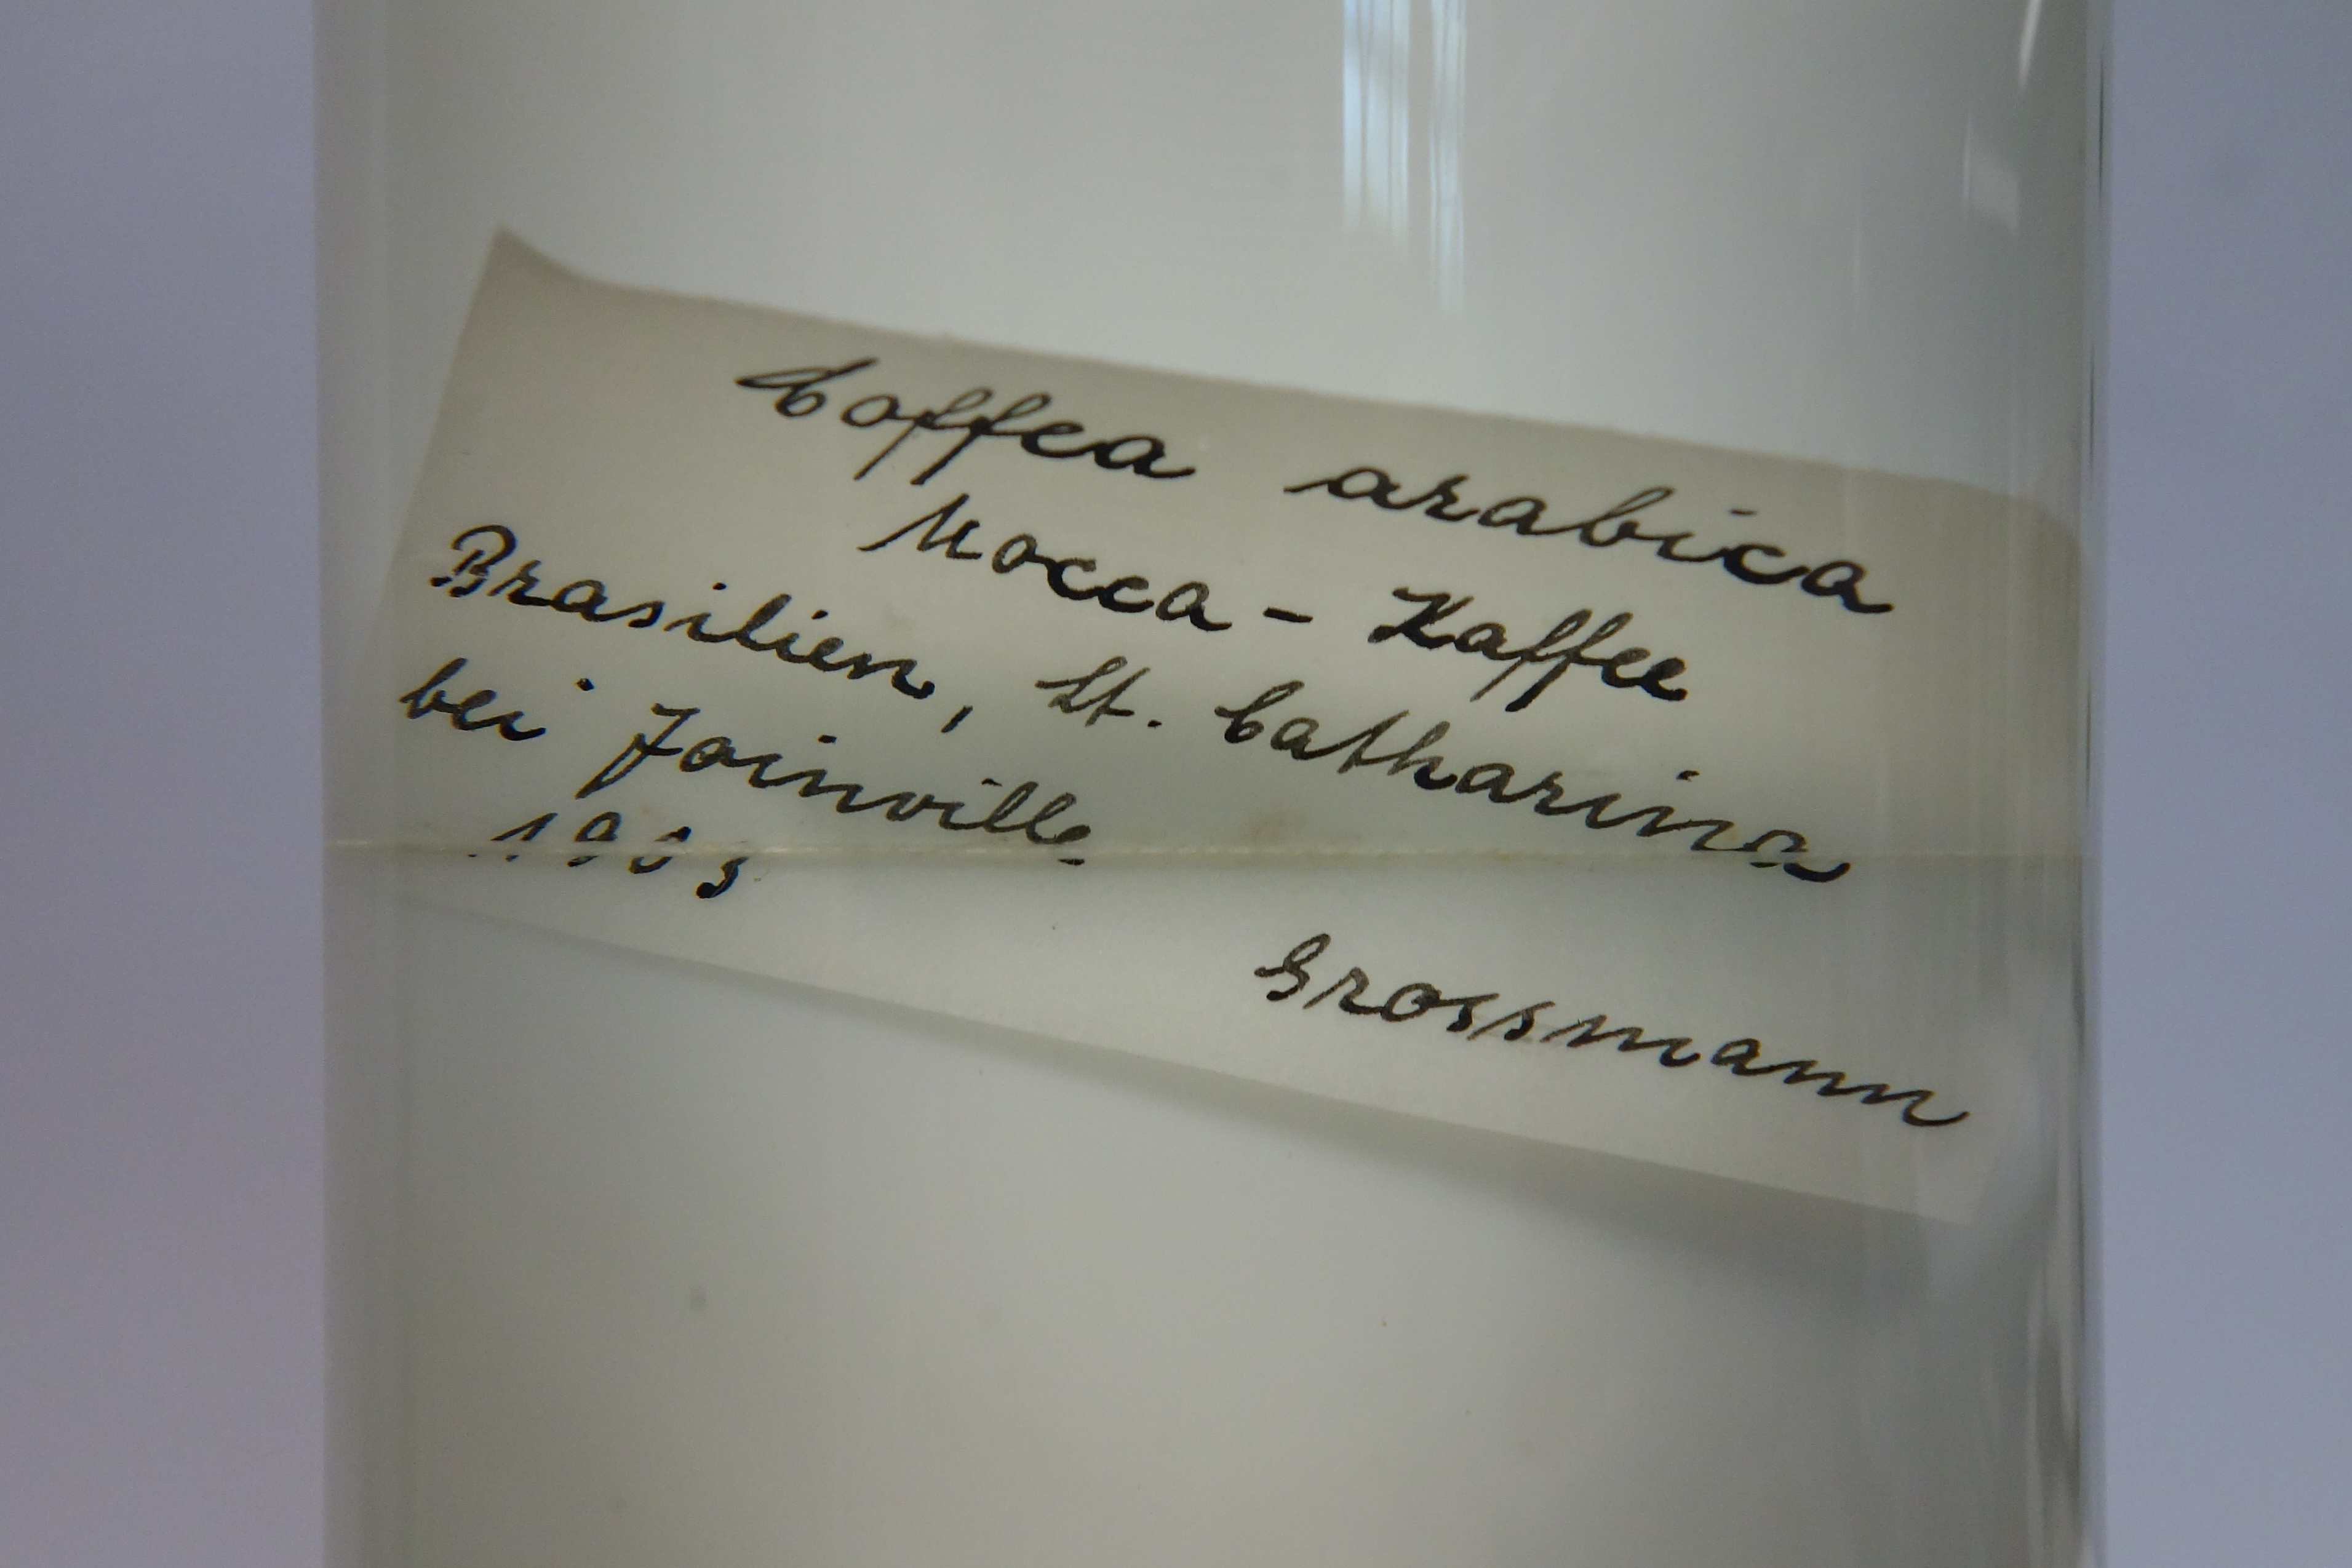 Coffea arabica
Mocca - Kaffee
Brasilien, St. Catharina
bei Joinville
1903
Grossmann